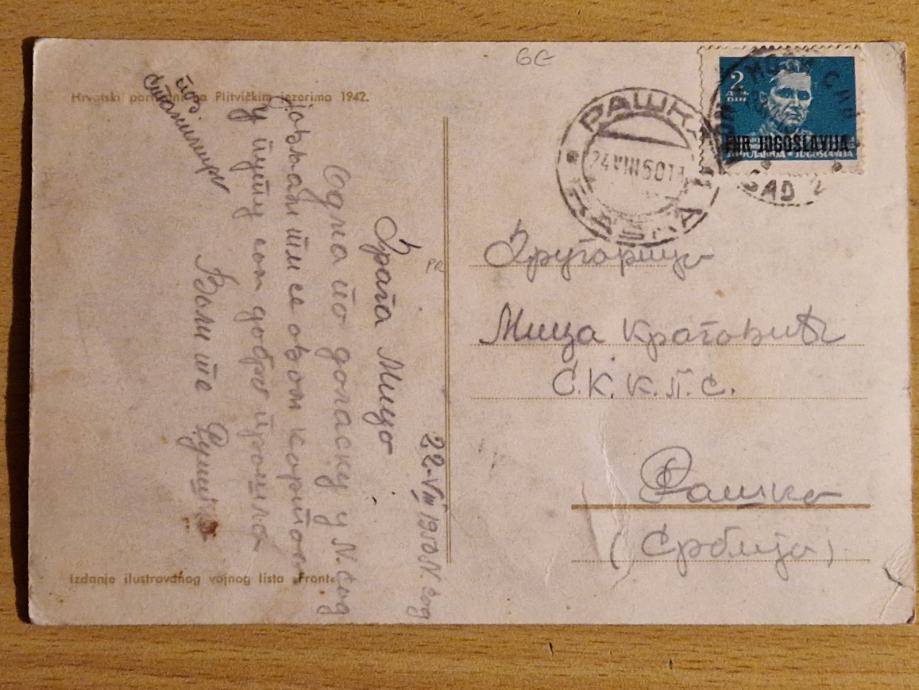 Hrvatski partizani na Plitvičkim jezerima 1942.
22-VIII 1950 N. Сад
Драга Мицо
Одма по доласку у Н. Сад
јављам ти се овом картом
у путу сам добро прошла
Воли те
поз.
Другарица
Мица Краговић
С.К.К.П.С.
Рашка
(Србија)
Izdanje ilustrovanog vojnog lista „Front“
6E
PR
РАШКА
24 VIII 50 11
2
DIN
FNR JUGOSLAVIJA
SAD 2